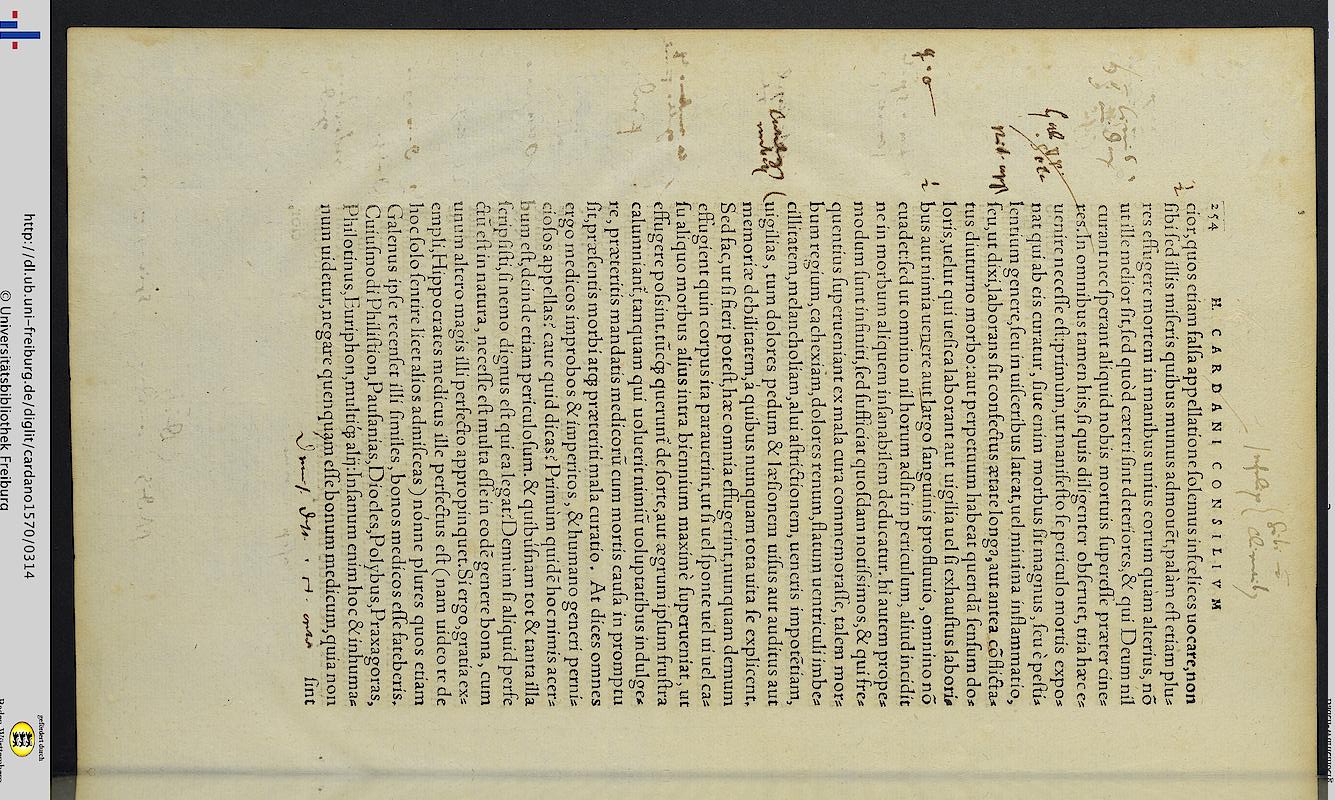 254 H. CARDANI CONSILIVM
cior, quos etiam falsa appellatione solemus infelices uocare, non
sibi sed illis miseris quibus munus admouēt, palàm est etiam plu-
res effugere mortem in manibus unius eorum quàm alterius, nō
ut ille melior sit, sed quòd cæteri sint deteriores, & qui Deum nil
curant ne sperant aliquid nobis mortuis superesse præter cine-
res. In omnibus tamen his, si quis diligenter obseruet, tria hæc e-
uenire necesse est: primùm, ut manifesto se periculo mortis expo-
nat qui ab eis curatur, siue enim morbus sit magnus, seu è pesti-
lentium genere, seu in uisceribus lateat, uel minima inflammatio,
seu, ut dixi, laborans sit confectus ætate longa, aut antea cōflicta-
tus diuturno morbo: aut perpetuum habeat quendā sensum do-
loris, uelut qui uesica laborant aut uigilia uel si exhaustus labori-
bus aut nimia uenere aut largo sanguinis profluuio, omnino nō
euadet: sed ut omnino nil horum adsit in periculum, aliud incidit
ne in morbum aliquem insanabilem deducatur. hi autem prope-
modum sunt infiniti, sed sufficiat quosdam notissimos, & qui fre-
quentius superueniant ex mala cura commemorasse, talem mor-
bum regium, cachexiam, dolores renum, flatum uentriculi imbe-
cillitatem, melancholiam, alui astrictionem, ueneris impotētiam,
uigilias, tum dolores pedum & læsionem uisus aut auditus aut
memoriæ debilitatem, a quibus nunquam tota uita se explicent.
Sed fac, ut si fieri potest, hæc omnia effugerint, nunquam demum
effugient quin corpus ita parauerint, ut si uel sponte uel ui uel ca-
su aliquo morbus alius intra biennium maximè superueniat, ut
effugere possint, tūcqȝ querunt̄ de sorte, aut ægrum ipsum frustra
calumniant̄, tanquam qui uoluerit nimiū uoluptatibus indulge-
re, præteritis mandatis medicorū cum mortis causa in promptu
sit, præsentis morbi atqȝ præteriti mala curatio. At dices omnes
ergo medicos improbos & imperitos, & humano generi perni-
ciosos appellas? caue quid dicas? Primum quidē hoc nimis acer-
bum est, deinde etiam periculosum. & quibusnam tot & tanta illa
scripsisti, si nemo dignus est qui ea legat? Demùm si aliquid perfe
ctū est in natura, necesse est multa esse in eodē genere bona, cum
unum altero magis illi perfecto appropinquet. Si ergo, gratia ex-
empli, Hippocrates medicus ille perfectus est (nam uideo te de
hoc solo sentire licet alios admisceas) nónne plures quos etiam
Galenus ipse recenset illi similes, bonos medicos esse fateberis.
Cuiusmodi Philistion, Pausanias, Diocles, Polybus, Praxagoras,
Philotinus, Euriphon, multiqȝ alij. Insanum enim hoc & inhuma-
num uidetur, negare quenquam esse bonum medicum, quia non
sint
http://dl.ub.uni-freiburg.de/diglit/cardano1570/0314
© Universitätsbibliothek Freiburg
gefördert durch